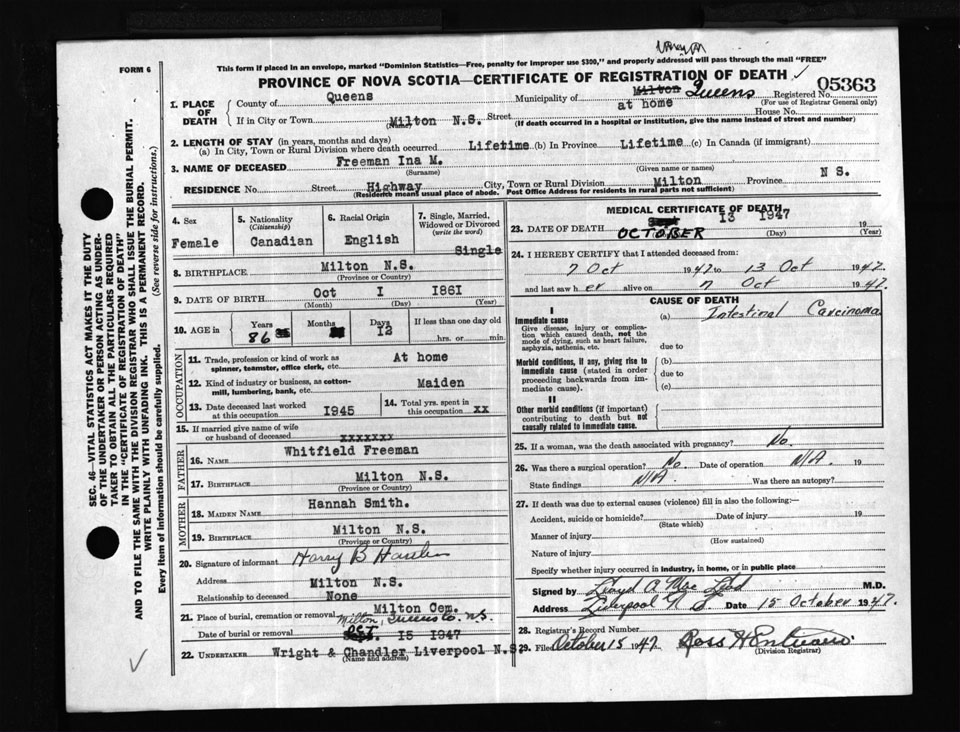 FORM 6
This form if placed in an envelope, marked "Dominion Statistics—Free, penalty for improper use $300," and properly addressed will pass through the mail "FREE"
PROVINCE OF NOVA SCOTIA—CERTIFICATE OF REGISTRATION OF DEATH ✓
05363
1. PLACE OF DEATH
County of Queens Municipality of Milton Queens Registered No.
(For use of Registrar General only)
If in City or Town Milton N.S. Street at home House No.
(Name) (If death occurred in a hospital or institution, give the name instead of street and number)
2. LENGTH OF STAY (in years, months and days)
(a) In City, Town or Rural Division where death occurred Lifetime (b) In Province Lifetime (c) In Canada (if immigrant)
3. NAME OF DECEASED Freeman Ina M.
(Surname) (Given name or names)
RESIDENCE No. Street Highway City, Town or Rural Division Milton Province N S.
(Residence means usual place of abode. Post Office Address for residents in rural parts not sufficient)
4. Sex Female
5. Nationality (Citizenship) Canadian
6. Racial Origin English
7. Single, Married, Widowed or Divorced (write the word) Single
8. BIRTHPLACE Milton N.S.
(Province or Country)
9. DATE OF BIRTH Oct I I86I
(Month) (Day) (Year)
10. AGE in Years 86 Months Days I2 If less than one day old
hrs. or min.
OCCUPATION
11. Trade, profession or kind of work as spinner, teamster, office clerk, etc. At home
12. Kind of industry or business, as cotton-mill, lumbering, bank, etc. Maiden
13. Date deceased last worked at this occupation I945
14. Total yrs. spent in this occupation xx
15. If married give name of wife or husband of deceased xxxxxxx
FATHER
16. Name Whitfield Freeman
17. Birthplace Milton N.S.
(Province or Country)
MOTHER
18. Maiden Name Hannah Smith.
19. Birthplace Milton N.S.
(Province or Country)
20. Signature of informant Harry B
Address Milton N.S.
Relationship to deceased None
21. Place of burial, cremation or removal Milton Cem.
Milton, Queens Co. N.S.
Date of burial or removal Sept. OCT I5 I947
22. UNDERTAKER Wright & Chandler Liverpool N.S.
(Name and address)
MEDICAL CERTIFICATE OF DEATH
23. DATE OF DEATH Sept OCTOBER I3 I947
(Day) (Year)
24. I HEREBY CERTIFY that I attended deceased from:
7 Oct 1947 to 13 Oct 1947
and last saw her alive on 7 Oct 1947
CAUSE OF DEATH
I
Immediate cause (a) Intestinal Carcinoma
Give disease, injury or complication which caused death, not the mode of dying, such as heart failure, asphyxia, asthenia, etc.
due to
Morbid conditions, if any, giving rise to immediate cause (stated in order proceeding backwards from immediate cause). (b)
due to
(c)
II
Other morbid conditions (if important) contributing to death but not causally related to immediate cause.
25. If a woman, was the death associated with pregnancy? No.
26. Was there a surgical operation? No. Date of operation N/A 19
State findings N/A. Was there an autopsy?
27. If death was due to external causes (violence) fill in also the following:—
Accident, suicide or homicide? Date of injury 19
(State which)
Manner of injury
(How sustained)
Nature of injury
Specify whether injury occurred in industry, in home, or in public place
Signed by Lloyd A M.D.
Address Liverpool N S. Date 15 October 1947.
28. Registrar's Record Number
29. Filed October 15 1947 Ross H
(Division Registrar)
SEC. 46—VITAL STATISTICS ACT MAKES IT THE DUTY
OF THE UNDERTAKER OR PERSON ACTING AS UNDER-
TAKER TO OBTAIN ALL THE PARTICULARS REQUIRED
IN THE "CERTIFICATE OF REGISTRATION OF DEATH"
AND TO FILE THE SAME WITH THE DIVISION REGISTRAR WHO SHALL ISSUE THE BURIAL PERMIT.
WRITE PLAINLY WITH UNFADING INK. THIS IS A PERMANENT RECORD.
Every item of information should be carefully supplied. (See reverse side for instructions.)